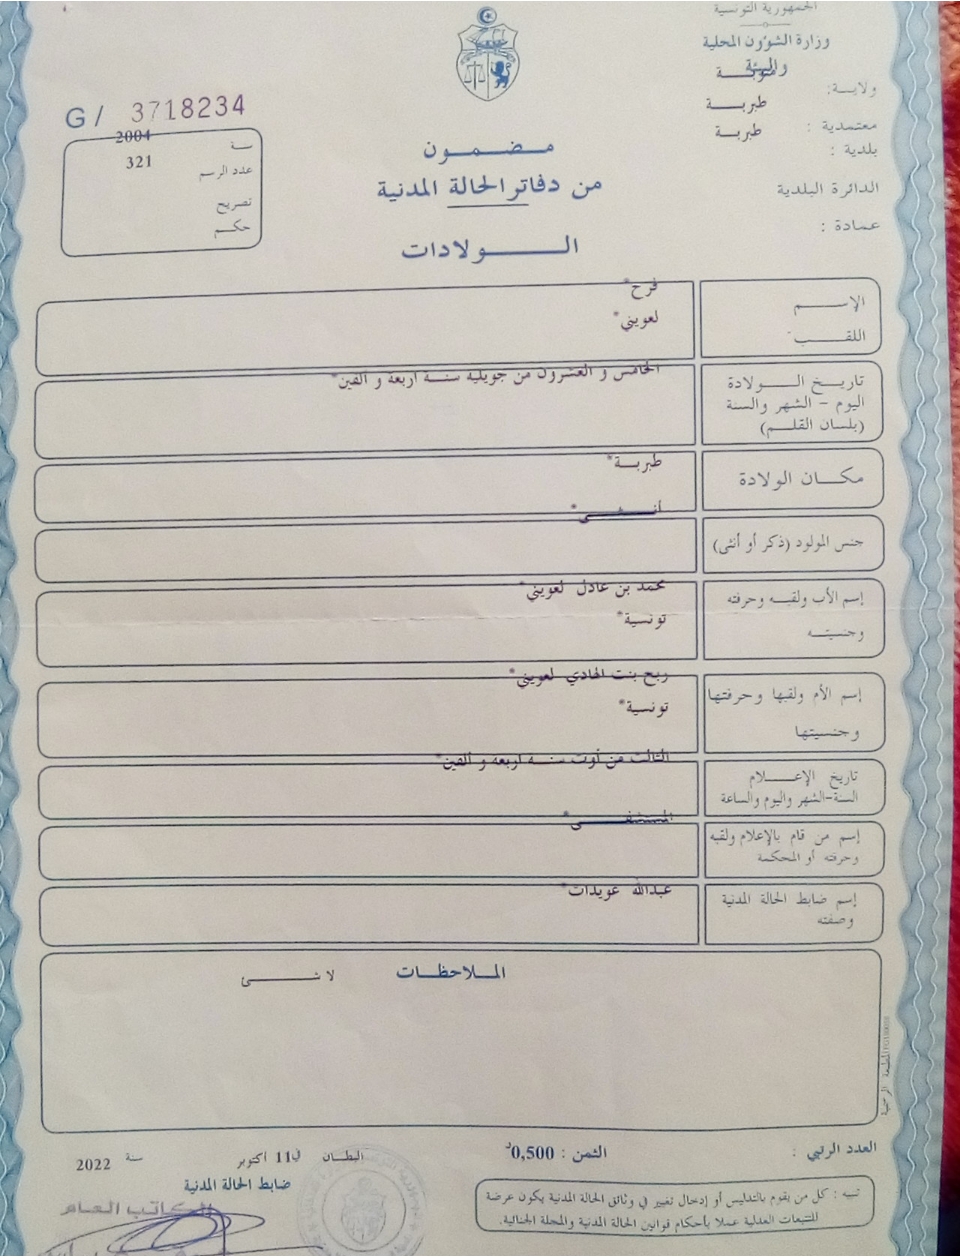 الجمهورية التونسية
وزارة الشؤون المحلية
والبيئة
منوبة
ولاية:
طبربة
معتمدية :
طبربة
بلدية :
الدائرة البلدية
عمادة :
G / 3718234
2004
سنة
321
عدد الرسم
تصريح
حكم
مضمون
من دفاتر الحالة المدنية
الولادات
الإسم
فرح*
اللقب
لعويني*
تاريخ الولادة
اليوم - الشهر والسنة
(بلسان القلم)
الخامس و العشرون من جويلية سنة اربعة و الفين*
مكان الولادة
طبربة*
جنس المولود (ذكر أو أنثى)
أنثى*
إسم الأب ولقبه وحرفته
وجنسيته
محمد بن عادل لعويني*
تونسية*
إسم الأم ولقبها وحرفتها
وجنسيتها
ربح بنت الهادي لعويني*
تونسية*
تاريخ الإعلام
السنة-الشهر واليوم والساعة
الثالث من أوت سنة اربعة و الفين*
إسم من قام بالإعلام ولقبه
وحرفته أو المحكمة
المستشفى*
إسم ضابط الحالة المدنية
وصفته
عبدالله عويدات*
الملاحظات
لا شئ
المطبعة الرسمية
العدد الرتبي :
الثمن : 0,500د
البطان في 11 أكتوبر سنة 2022
ضابط الحالة المدنية
الكاتب العام
تنبيه : كل من يقوم بالتدليس أو إدخال تغيير في وثائق الحالة المدنية يكون عرضة
للتتبعات العدلية عملا بأحكام قوانين الحالة المدنية والمجلة الجنائية.